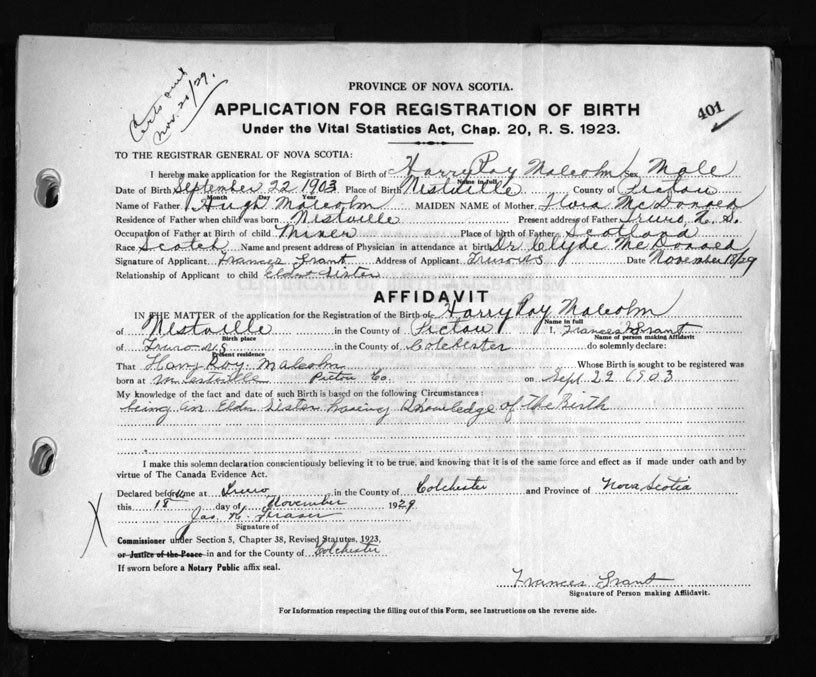 Certs and
Nov. 20/29.
401
PROVINCE OF NOVA SCOTIA.
APPLICATION FOR REGISTRATION OF BIRTH
Under the Vital Statistics Act, Chap. 20, R. S. 1923.
TO THE REGISTRAR GENERAL OF NOVA SCOTIA:
I hereby make application for the Registration of Birth of Harry Roy Malcolm Sex Male
Name in full
Date of Birth September 22 1903 Place of Birth Westville County of Pictou
Month Day Year
Name of Father Hugh Malcolm MAIDEN NAME of Mother Flora McDonald
Residence of Father when child was born Westville Present address of Father Truro N. S.
Occupation of Father at Birth of child Miner Place of birth of Father Scotland
Race Scotch Name and present address of Physician in attendance at birth Dr. Clyde McDonald
Signature of Applicant Frances Grant Address of Applicant Truro NS Date November 18/29
Relationship of Applicant to child Elder Sister
AFFIDAVIT
IN THE MATTER of the application for the Registration of the Birth of Harry Roy Malcolm
Name in full
of Westville in the County of Pictou I, Frances Grant
Birth place Name of person making Affidavit
of Truro N.S in the County of Colchester do solemnly declare:
Present residence
That Harry Roy Malcolm Whose Birth is sought to be registered was
born at Westville Pictou Co. on Sept. 22 1903
My knowledge of the fact and date of such Birth is based on the following Circumstances:
being an Elder Sister having Knowledge of the Birth
I make this solemn declaration conscientiously believing it to be true, and knowing that it is of the same force and effect as if made under oath and by
virtue of The Canada Evidence Act.
Declared before me at Truro in the County of Colchester and Province of Nova Scotia
this 18th day of November 1929
Jas. K. Fraser
Signature of
X
Commissioner under Section 5, Chapter 38, Revised Statutes, 1923,
or Justice of the Peace in and for the County of Colchester
If sworn before a Notary Public affix seal.
Frances Grant
Signature of Person making Affidavit.
For Information respecting the filling out of this Form, see Instructions on the reverse side.